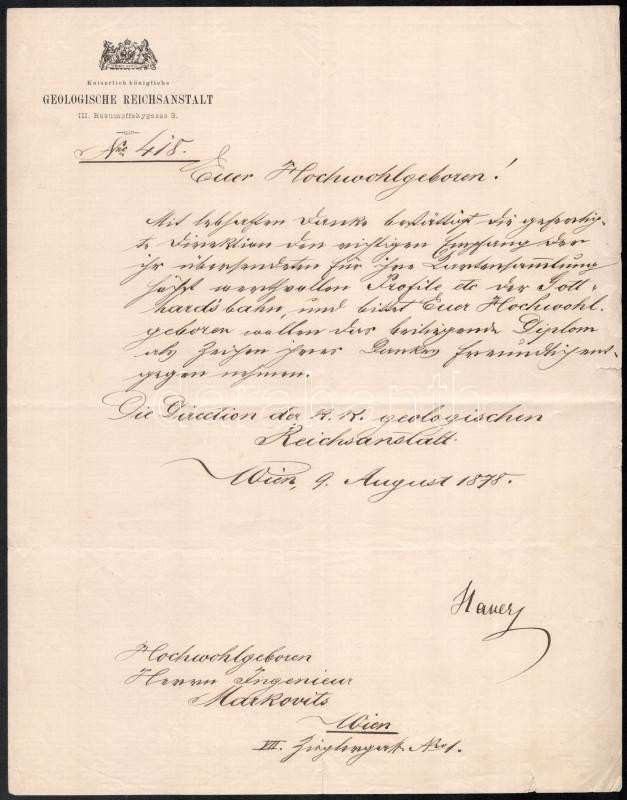 Kaiserlich königliche
GEOLOGISCHE REICHSANSTALT
III. Rasumoffskygasse 3.
No. 418.
Euer Hochwohlgeboren!
Mit lebhaften Danke bestättigt die gefertig-
te Direktion den richtigen Empfang der
ihr übersendeten für ihre Kartensammlung
höchst werthvollen Profile etc der Gott-
hardsbahn, und bittet Euer Hochwohl-
geboren wollen das beiliegende Diplom
als Zeichen ihres Dankes freundlich ent-
gegen nehmen.
Die Direction der K. K. geologischen
Reichsanstalt.
Wien, 9. August 1878.
Hauer
Hochwohlgeboren
Herrn Ingenieur
Markovits
Wien
VII. Zieglergasse No 1.
darabanth